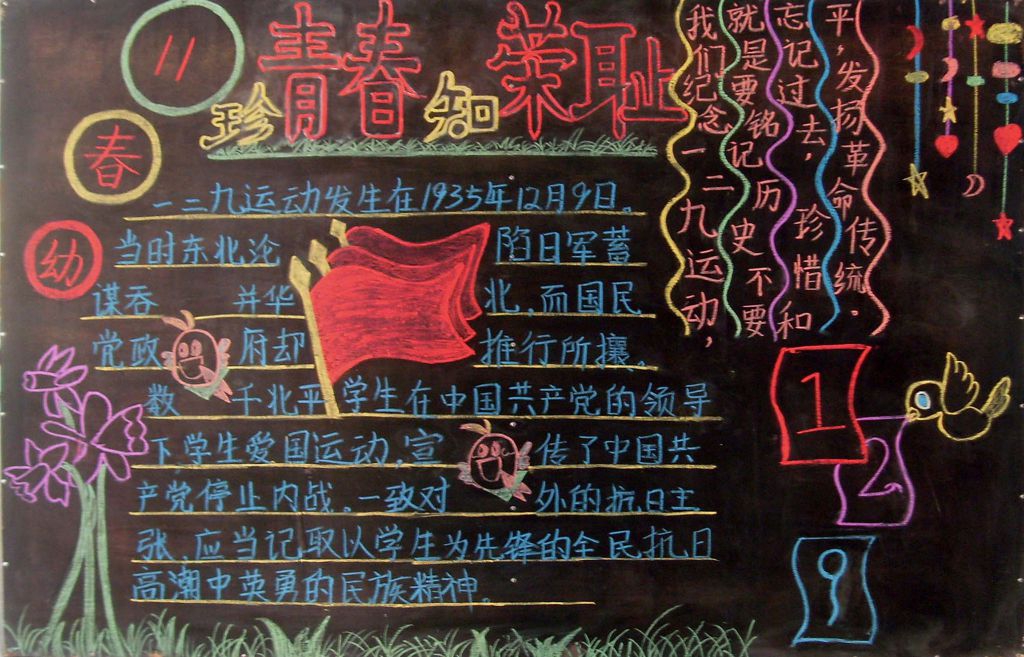 11
春
幼
珍青春知荣耻
一二九运动发生在1935年12月9日。
当时东北沦陷日军蓄
谋吞并华北,而国民
党政府却推行所攘。
数千北平学生在中国共产党的领导
下,学生爱国运动,宣传了中国共
产党停止内战,一致对外的抗日主
张,应当记取以学生为先锋的全民抗日
高潮中英勇的民族精神。
我们纪念一二九运动,
就是要铭记历史不要
忘记过去,珍惜和
平,发扬革命传统.
1
2
9